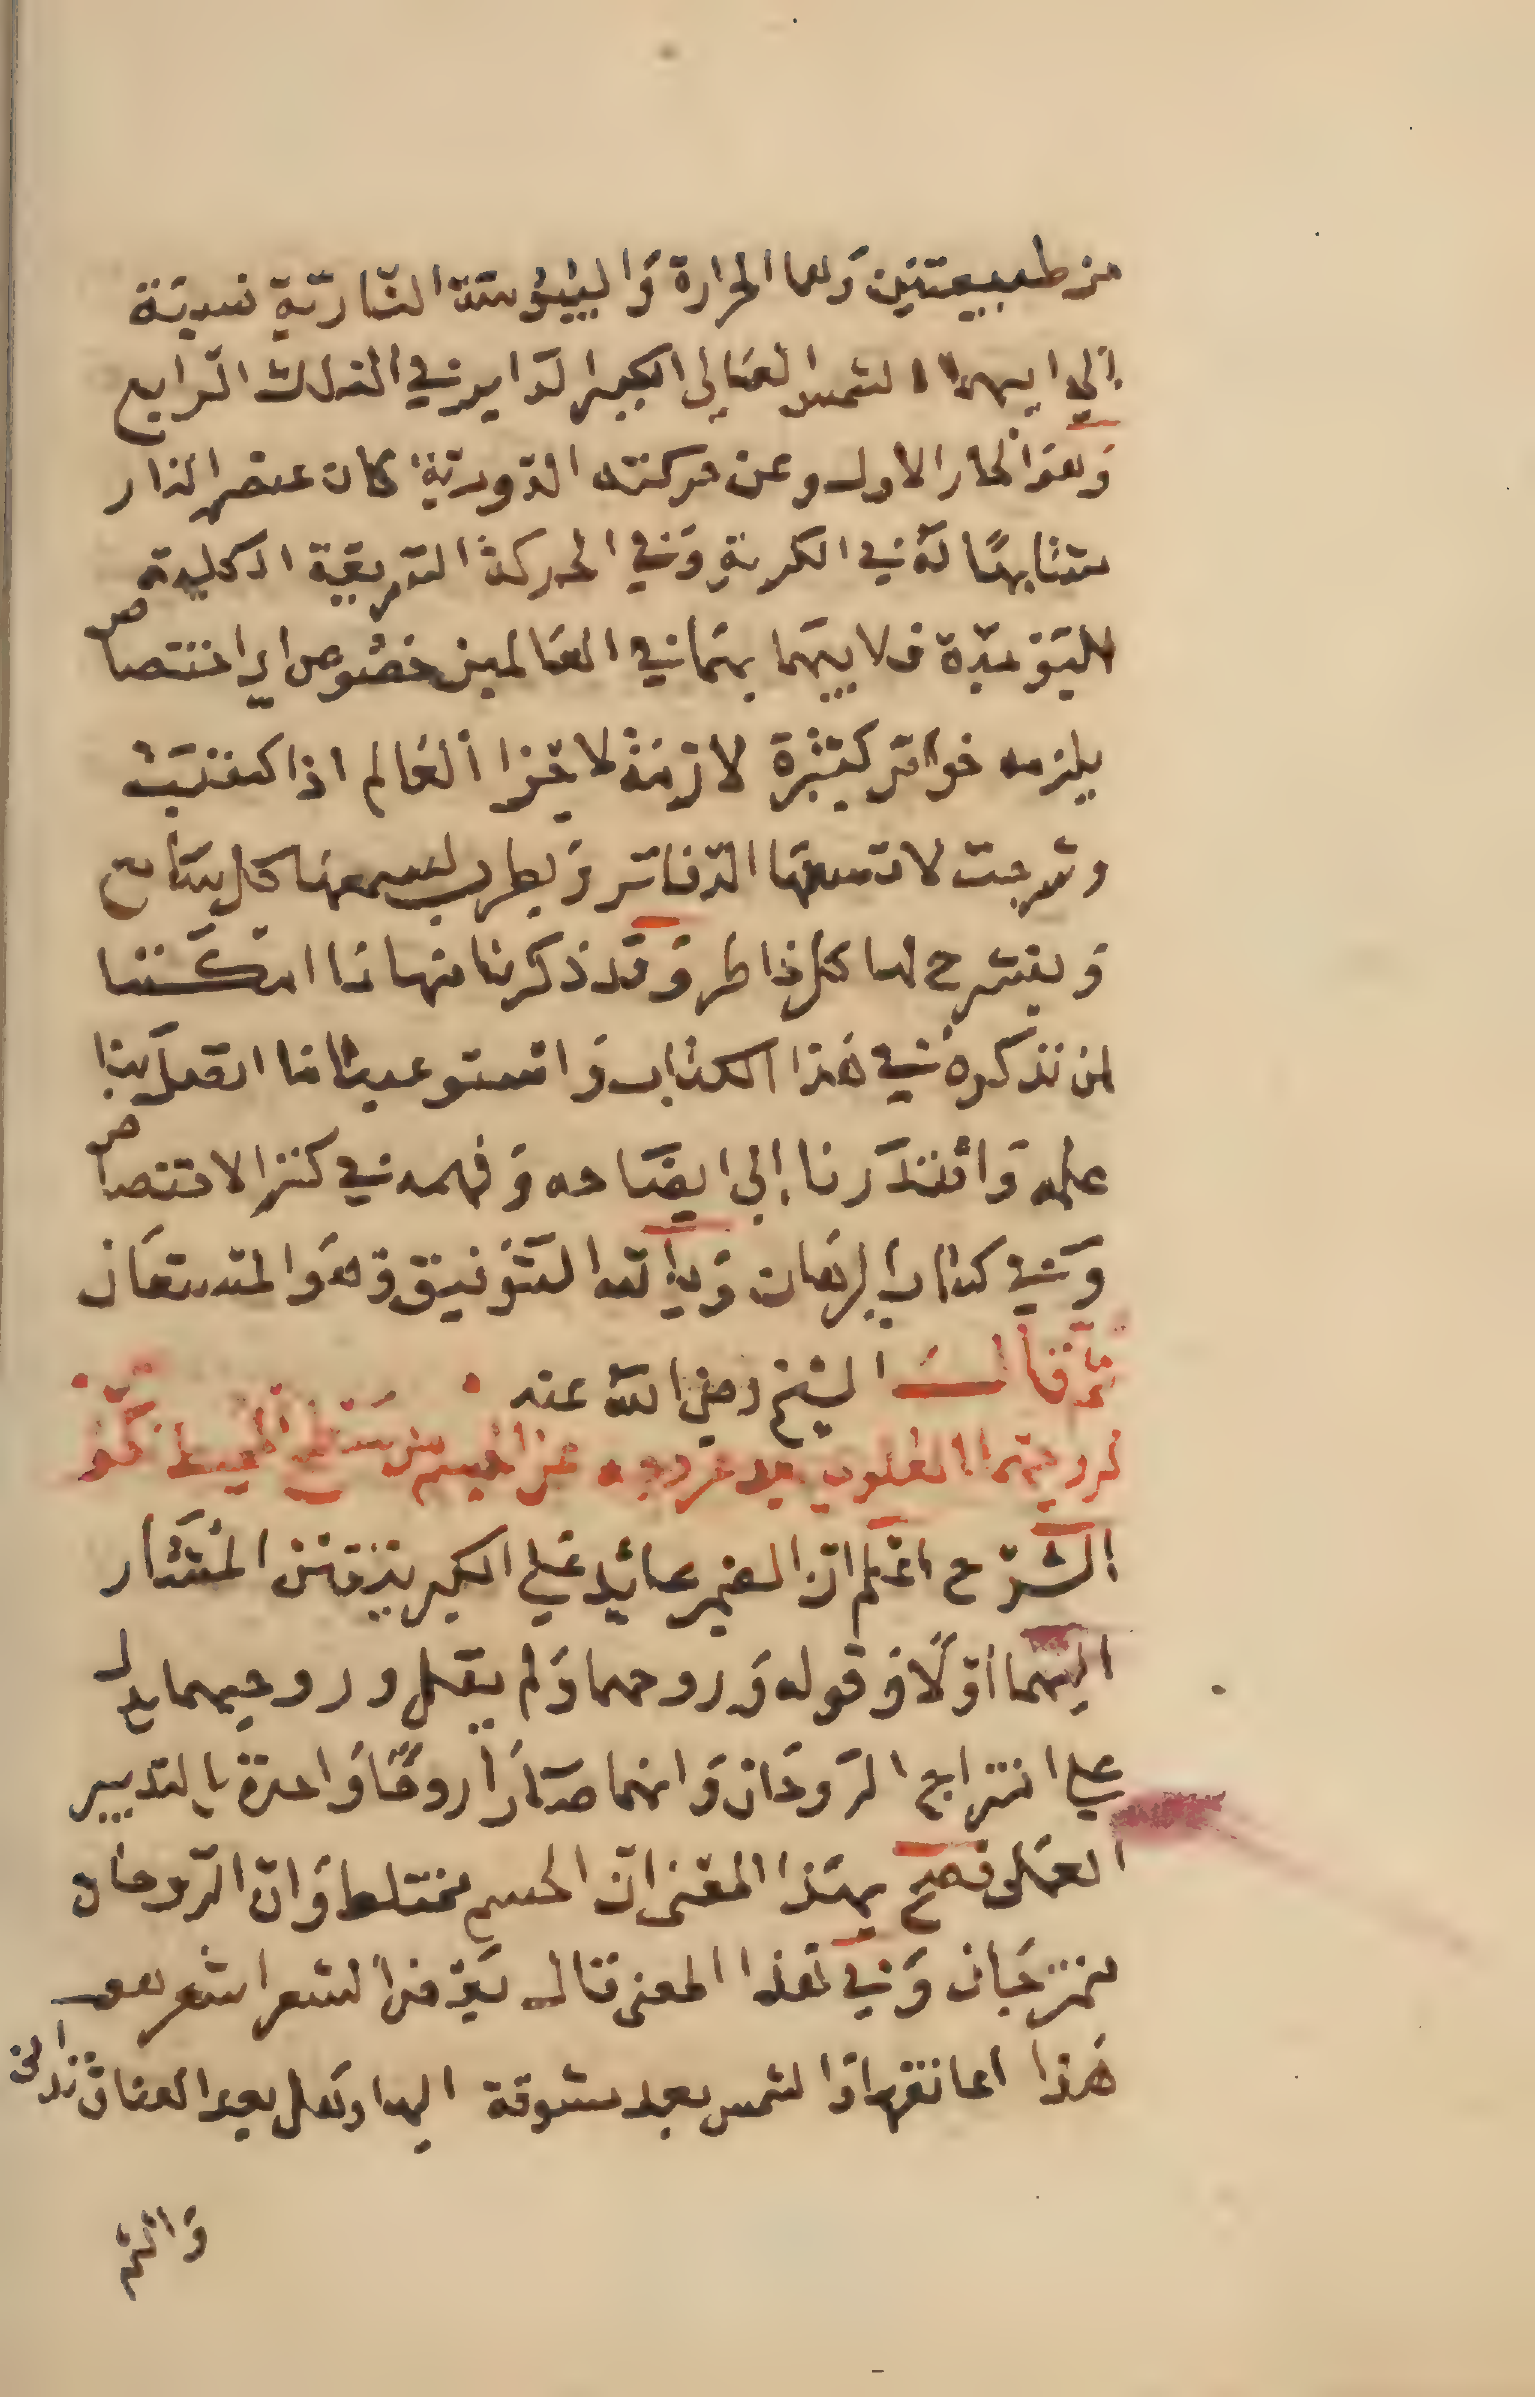 من طبيعتين وهما الحرارة واليبوسة النارية نسبة
إلي ابيها الشمس العالي الكبير الداير في الفلك الرابع
وهو الحار الاول وعن حركته الدورية كان عنصر النار
متشابها له في الكرية وفي الحركة الكلية
اليومية فلابيهما في العالمين خصوص اي اختصاص
يلزمه خواتر كثيرة لازمة لاجزا العالم اذا كتبت
وشرحت لا تسعها الدفاتر ويطرب لسمعها كل سامع
وينشرح لها كل خاطر وقد ذكرنا منها ما امكننا
ان نذكره في هذا الكتاب واستوعبنا ما اتصل بنا
علمه واقتدرنا إلي ايضاحه وفهمه في كنز الاختصاص
وفي كتاب البرهان وبالله التوفيق وهو المستعان
ثم قال الشيخ رضي الله عنه
وروحهما العلوي بعد عروجه عن الجسم من سطح المحيط
الشرح اعلم ان الضمير عائد علي الكبريتين المشار
اليهما أولا وقوله وروحهما ولم يقل وروحيهما يدل
علي امتزاج الروحان وانهما صارا روحا واحدة بالتدبير
العملي فصح بهذا المعنى ان الجسم مختلط وان الروحان
ممتزجان وفي هذا المعنى قال بعض الشعرا شعر
هذا اعانقها والشمس بعد مشوقة اليها وهل بعد العناق تداني
والثم